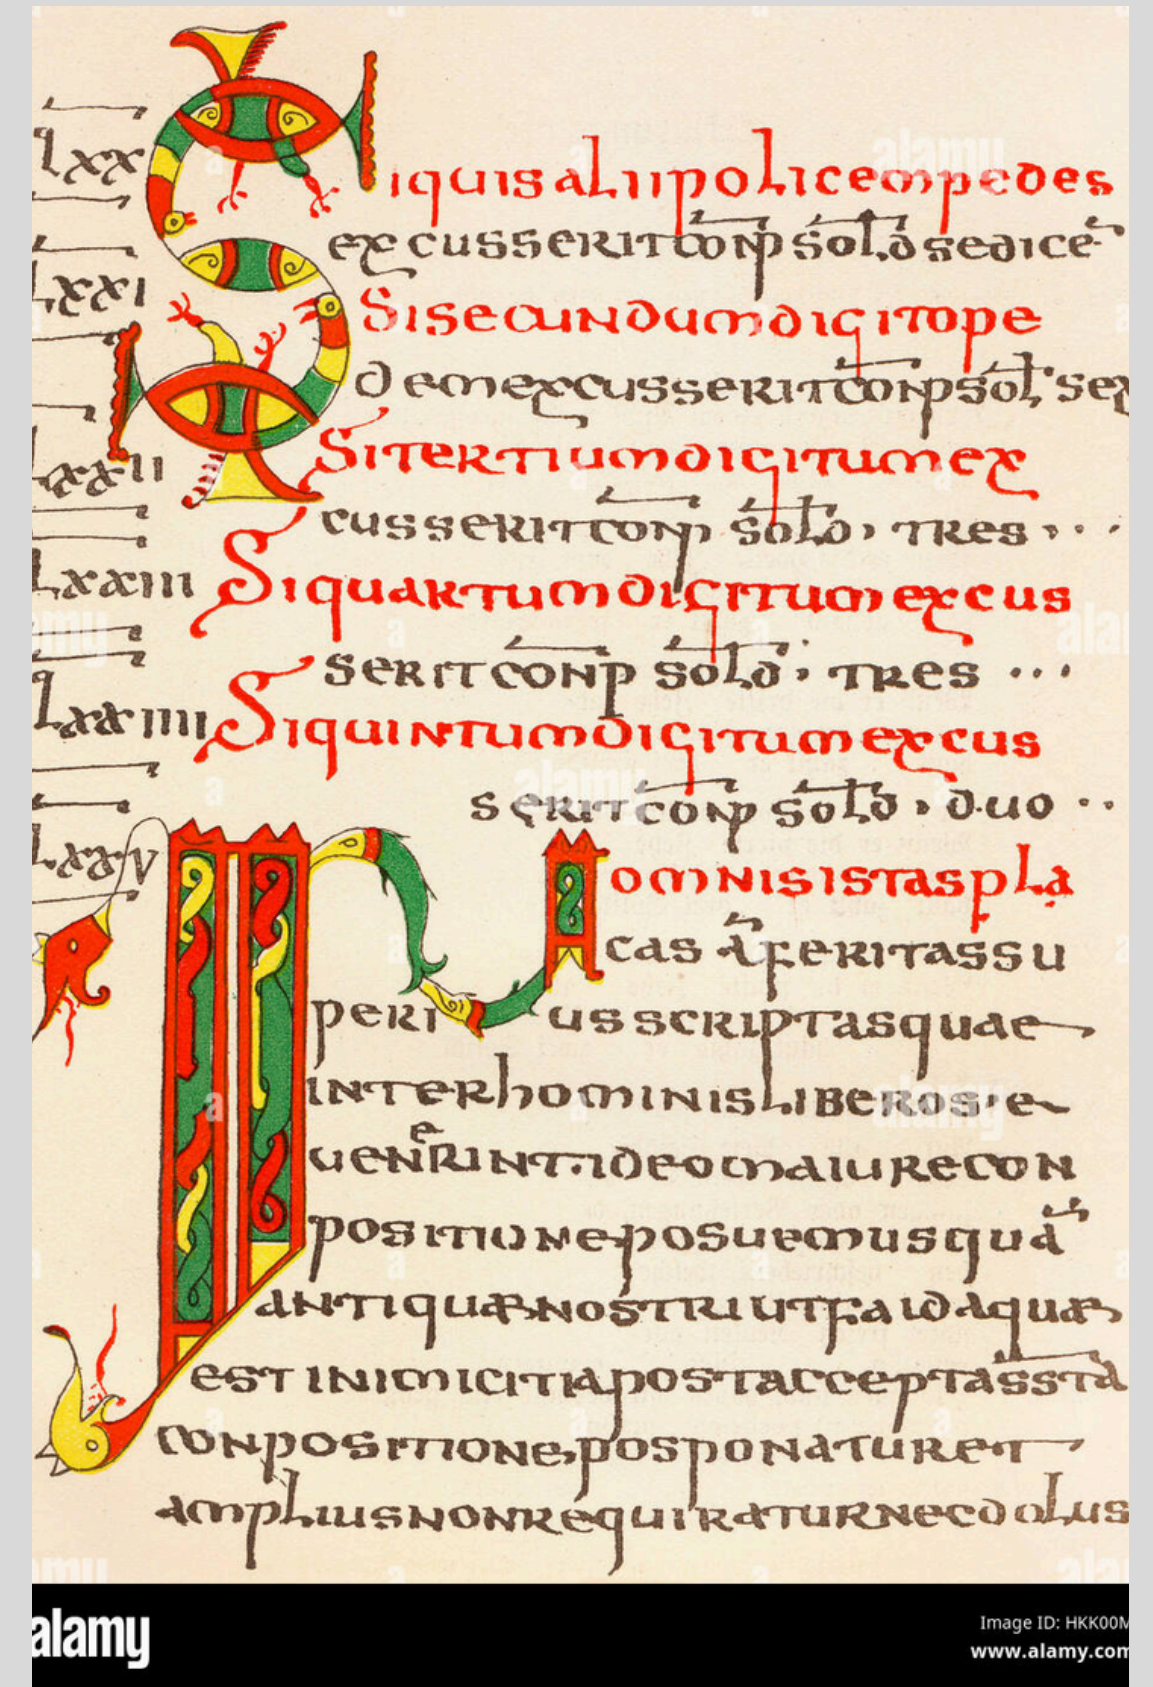 Lxx
Siquis alii policem pedes
excusserit conp sold sedice
Lxxi
Si secundum digito pe
de mexcusserit conp sol sex
Lxxii
Si tertium digitum ex
cusserit conp sold · tres · · ·
Lxxiii
Si quartum digitum excus
serit conp sold · tres · · ·
Lxxiiii
Si quintum digitum excus
serit conp sold · duo · ·
Lxxv
In omnis istas pla
cas feritas su
perius scriptas quae
inter hominis liberos · e
uenerint · ideo maiure con
positione posuemus quā
antiquae nostri ut faida quae
est inimicitia post acceptā sstā
conpositione, posponatur et
amplius non requiratur nec dolus
alamy
Image ID: HKK00M
www.alamy.com